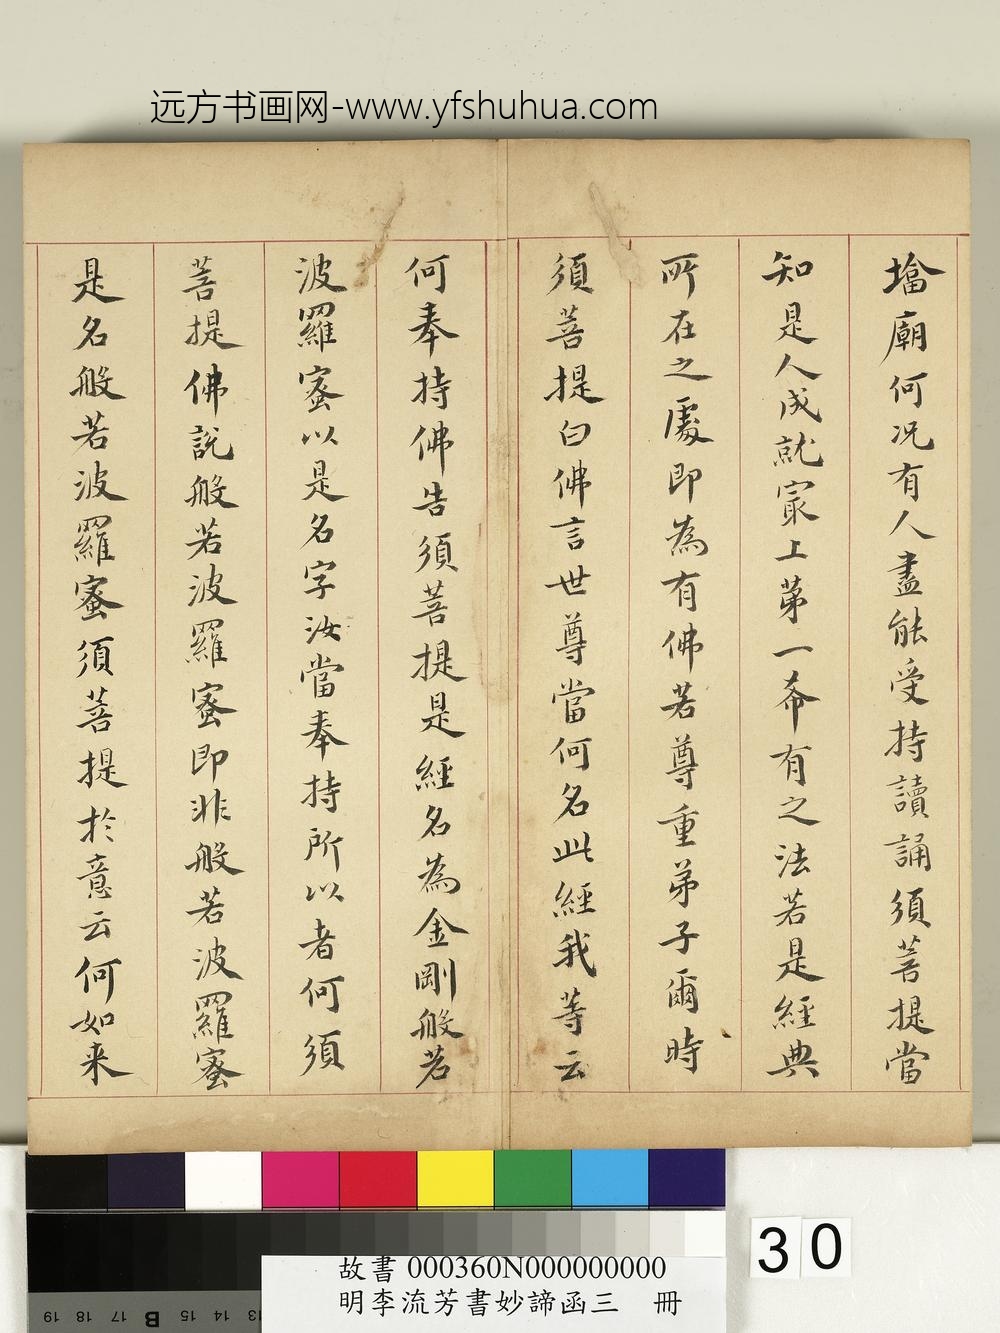 远方书画网-www.yfshuhua.com
墖廟何况有人盡能受持讀誦須菩提當
知是人成就冣上苐一希有之法若是經典
所在之處即為有佛若尊重弟子爾時
須菩提白佛言世尊當何名此經我等云
何奉持佛告須菩提是經名為金剛般若
波羅蜜以是名字汝當奉持所以者何須
菩提佛說般若波羅蜜即非般若波羅蜜
是名般若波羅蜜須菩提於意云何如来
30
故書 000360N000000000
明李流芳書妙諦函三 冊
19 18 17 B 15 14 13